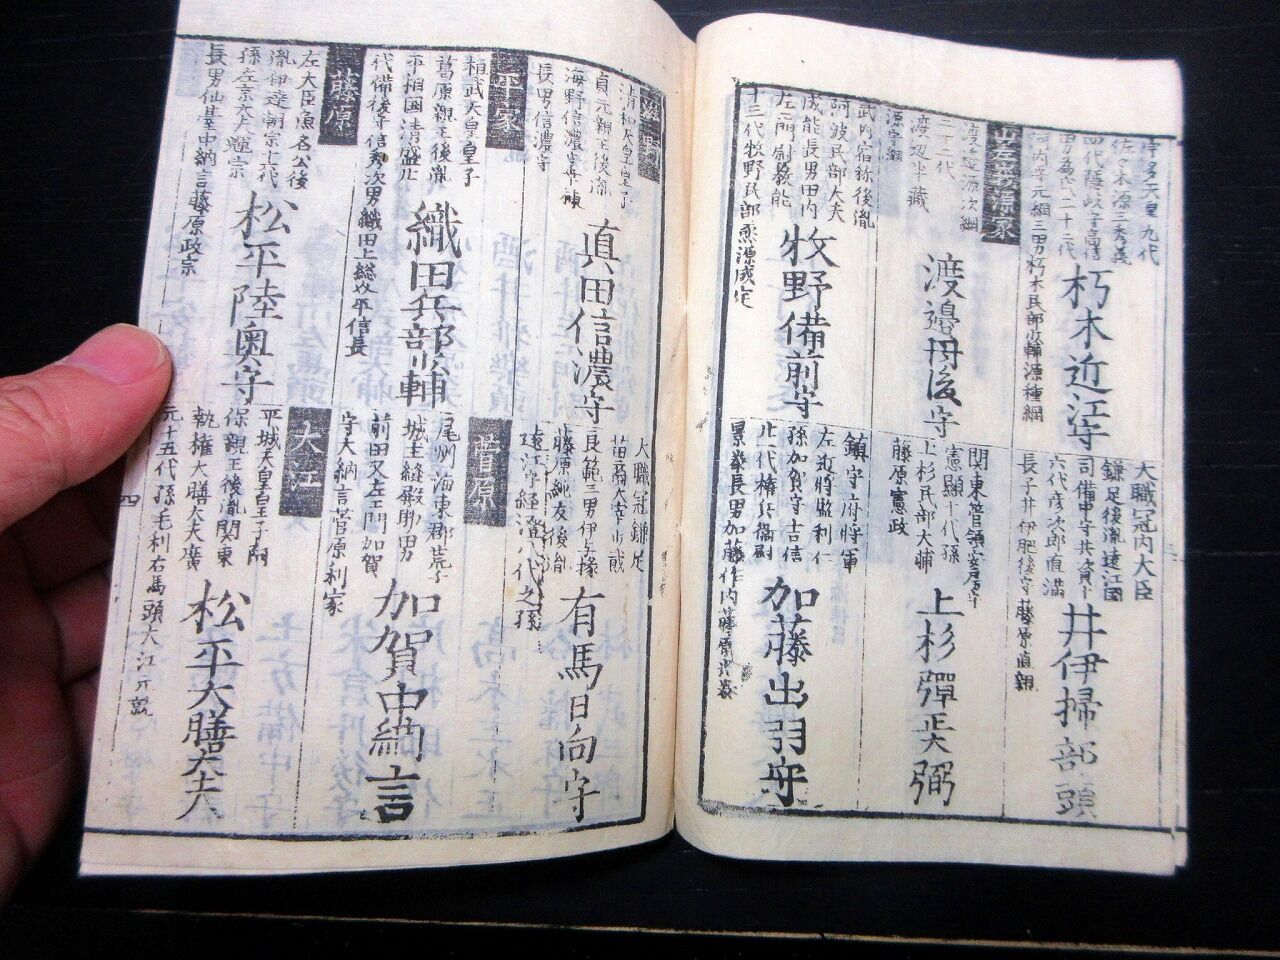 宇多天皇九代
佐々木源三秀義
四代隠岐守高信
河内守元綱三男朽木民部少輔源種綱
朽木近江守
渡辺源次綱
二十二代
渡辺半蔵
源守綱
渡邉丹後守
武内宿祢後胤
阿波民部大夫
成能長男田内
左衛門尉教能
十三代牧野民部烝源成定
牧野備前守
大職冠内大臣
鎌足後胤遠江國
司備中守共資十
六代彦次郎直満
長子井伊肥後守藤原直親
井伊掃部頭
関東管領安房守
憲顯十代孫
上杉民部大輔
藤原憲政
上杉彈正弼
鎮守府将軍
左近将監利仁
孫加賀守吉信
廿代権兵衛尉
景泰長男加藤作内藤原光泰
加藤出羽守
滋野
清和天皇皇子
貞元親王後胤
海野信濃守幸棟
長男信濃守
真田信濃守
平家
桓武天皇皇子
葛原親王後胤
平相国清盛廿
代備後守信秀次男織田上総介平信長
織田兵部少輔
藤原
左大臣魚名公後
胤伊達朝宗十七代
孫左京大夫輝宗
長男仙臺中納言藤原政宗
松平陸奥守
大職冠鎌足
苗裔大宰少貳
長範三男伊与掾
藤原純友後胤
遠江守経澄八代之孫
有馬日向守
菅原
尾州海東郡荒子
城主縫殿助男
前田又左エ門加賀
守大納言菅原利家
加賀中納言
大江
平城天皇皇子阿
保親王後胤関東
執権大膳大夫廣
元十五代孫毛利右馬頭大江元就
松平大膳大夫
四